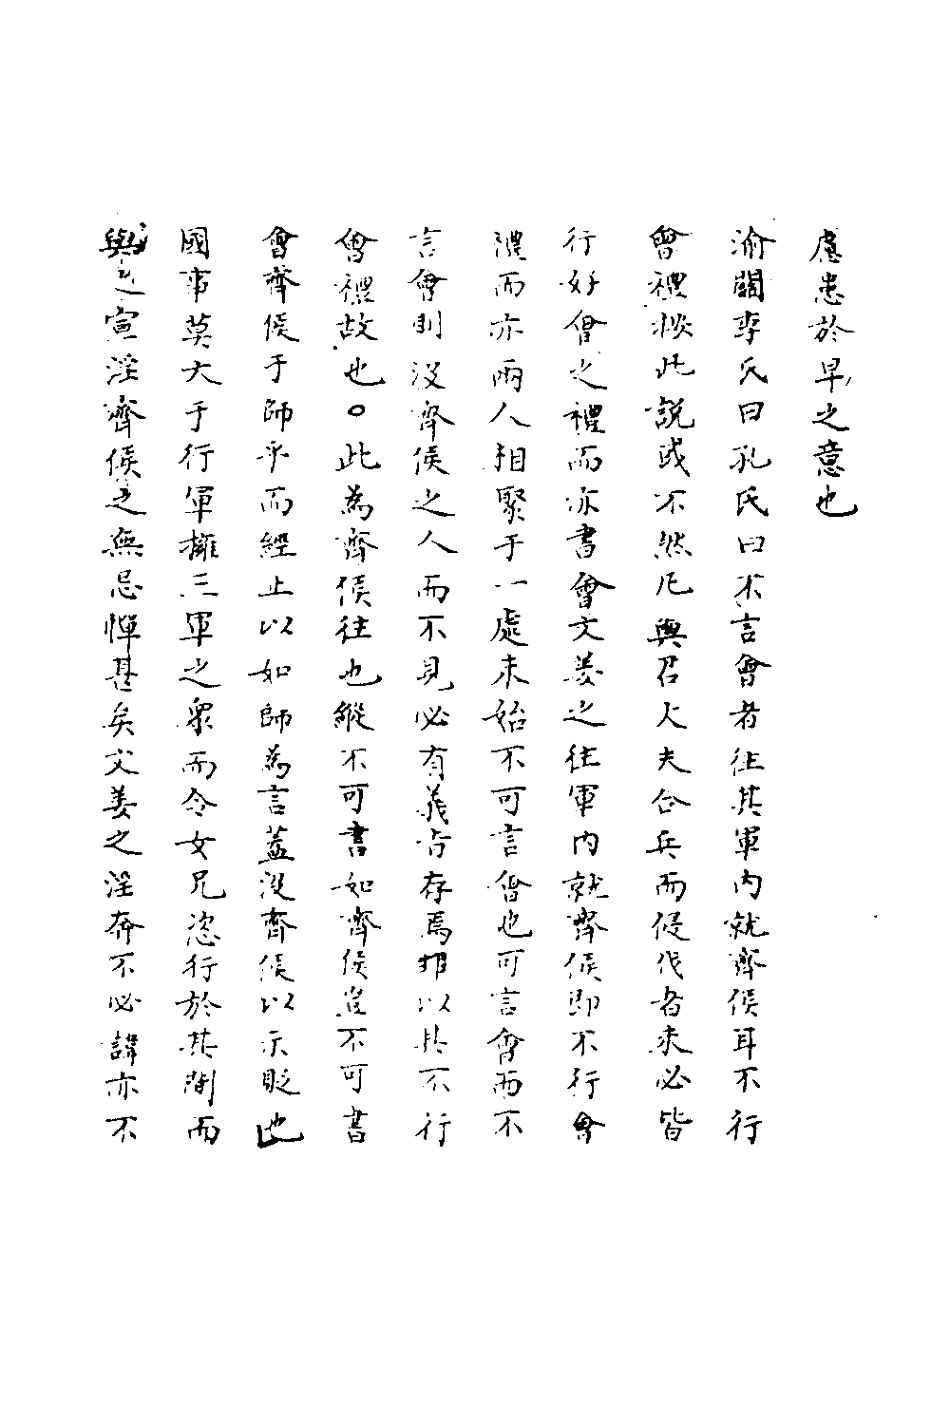 慮患於早之意也
渝關李氏曰孔氏曰不言會者往其軍內就齊侯耳不行
會禮揆此說或不然凡與君大夫合兵而侵伐者未必皆
行好會之禮而亦書會文姜之往軍內就齊侯即不行會
禮而亦兩人相聚于一處未始不可言會也可言會而不
言會則沒齊侯之人而不見必有義旨存焉非以其不行
會禮故也○此為齊侯往也縱不可書如齊侯豈不可書
會齊侯于師乎而經止以如師為言蓋沒齊侯以示貶也
國事莫大于行軍擁三軍之眾而令女兄恣行於其間而
與之宣淫齊侯之無忌憚甚矣文姜之淫奔不必諱亦不